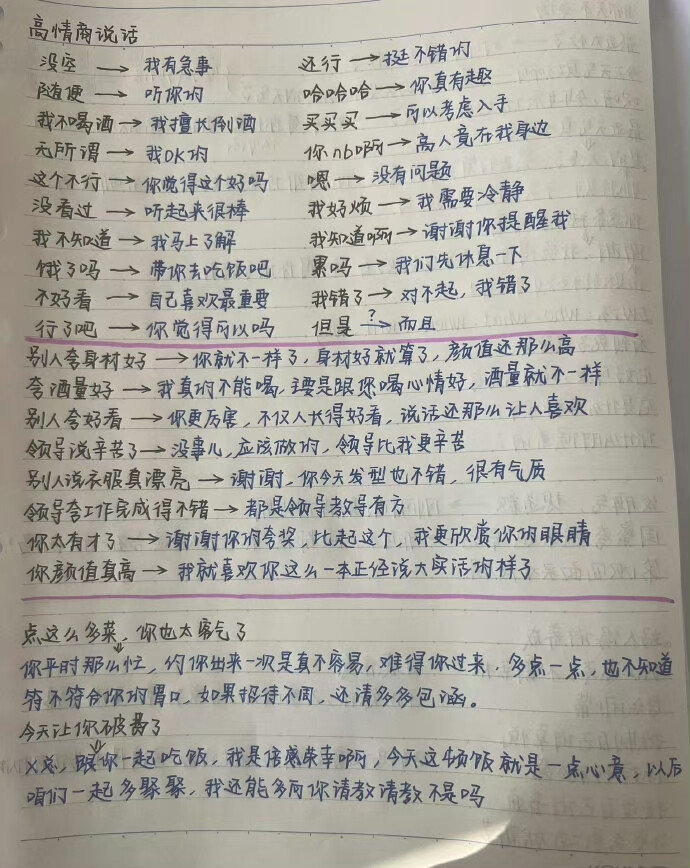 高情商说话
没空 → 我有急事 还行 → 挺不错的
随便 → 听你的 哈哈哈 → 你真有趣
我不喝酒 → 我擅长倒酒 买买买 → 可以考虑入手
无所谓 → 我OK的 你nb啊 → 高人竟在我身边
这个不行 → 你觉得这个好吗 嗯 → 没有问题
没看过 → 听起来很棒 我好烦 → 我需要冷静
我不知道 → 我马上了解 我知道啊 → 谢谢你提醒我
饿了吗 → 带你去吃饭吧 累吗 → 我们先休息一下
不好看 → 自己喜欢最重要 我错了 → 对不起，我错了
行了吧 → 你觉得可以吗 但是 ?→ 而且
别人夸身材好 → 你就不一样了，身材好就算了，颜值还那么高
夸酒量好 → 我真的不能喝，主要是跟您喝心情好，酒量就不一样
别人夸好看 → 你更厉害，不仅人长得好看，说话还那么让人喜欢
领导说辛苦了 → 没事儿，应该做的，领导比我更辛苦
别人说衣服真漂亮 → 谢谢，你今天发型也不错，很有气质
领导夸工作完成得不错 → 都是领导教导有方
你太有才了 → 谢谢你的夸奖，比起这个，我更欣赏你的眼睛
你颜值真高 → 我就喜欢你这么一本正经说大实话的样子
点这么多菜，你也太客气了
你平时那么忙，约你出来一次是真不容易，难得你过来，多点一点，也不知道
符不符合你的胃口，如果招待不周，还请多多包涵。
今天让你破费了
X总，跟你一起吃饭，我是倍感荣幸啊，今天这顿饭就是一点心意，以后
咱们一起多聚聚，我还能多向你请教请教不是吗